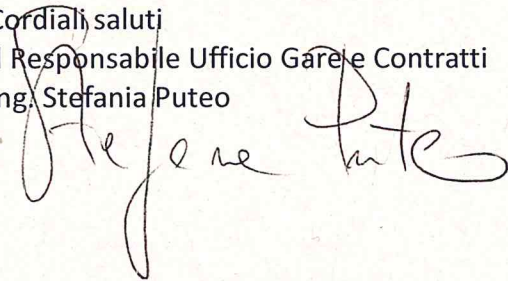 Cordiali saluti
l Responsabile Ufficio Gare e Contratti
ng. Stefania Puteo
Stefane Puteo